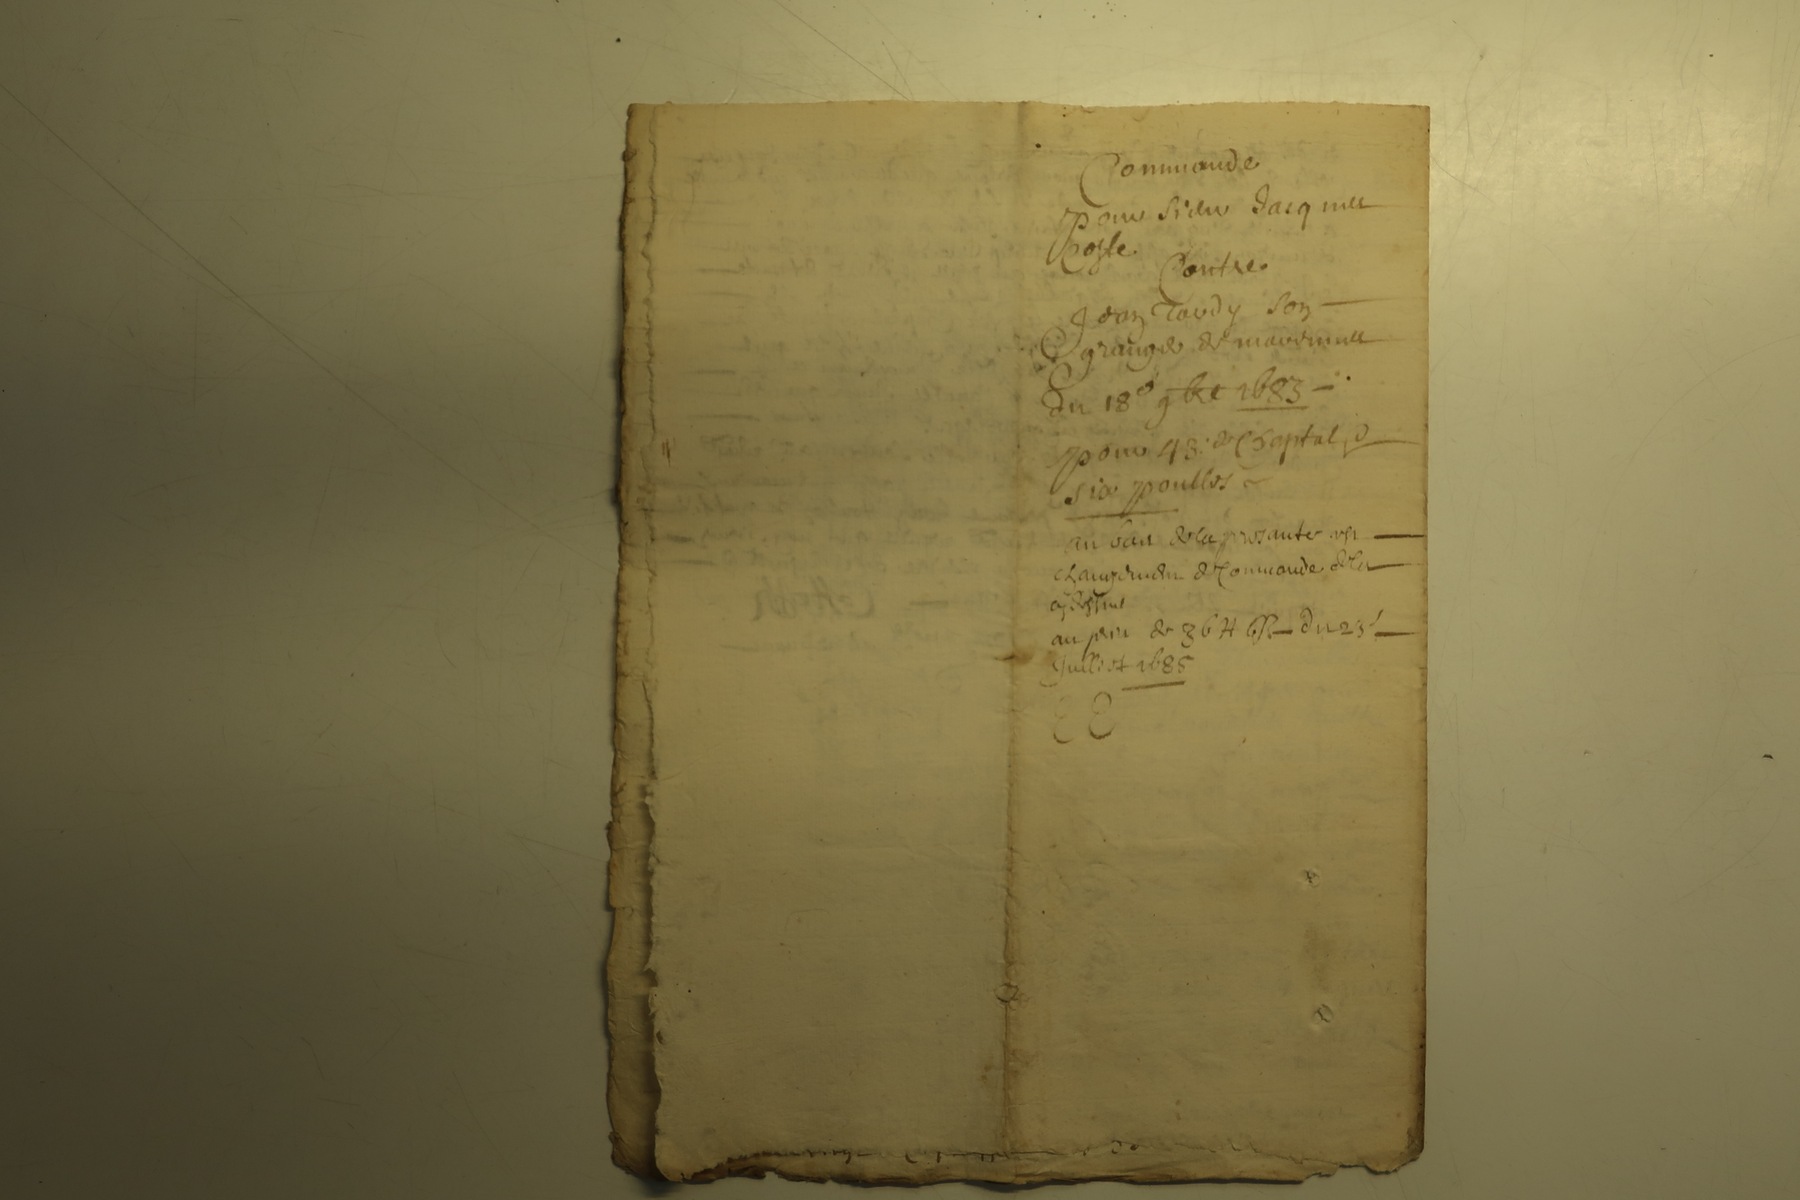 Commande
pour sieur Jacques
Coste
Contre
Jean Tardy son
granger de mavesines
du 18e 9bre 1683
pour 43: de Chaptal &
six poulles
au bas de la presante est
changemen de Commande de la
au prix de 36 ₶ 6 ß du 23e
Juillet 1685